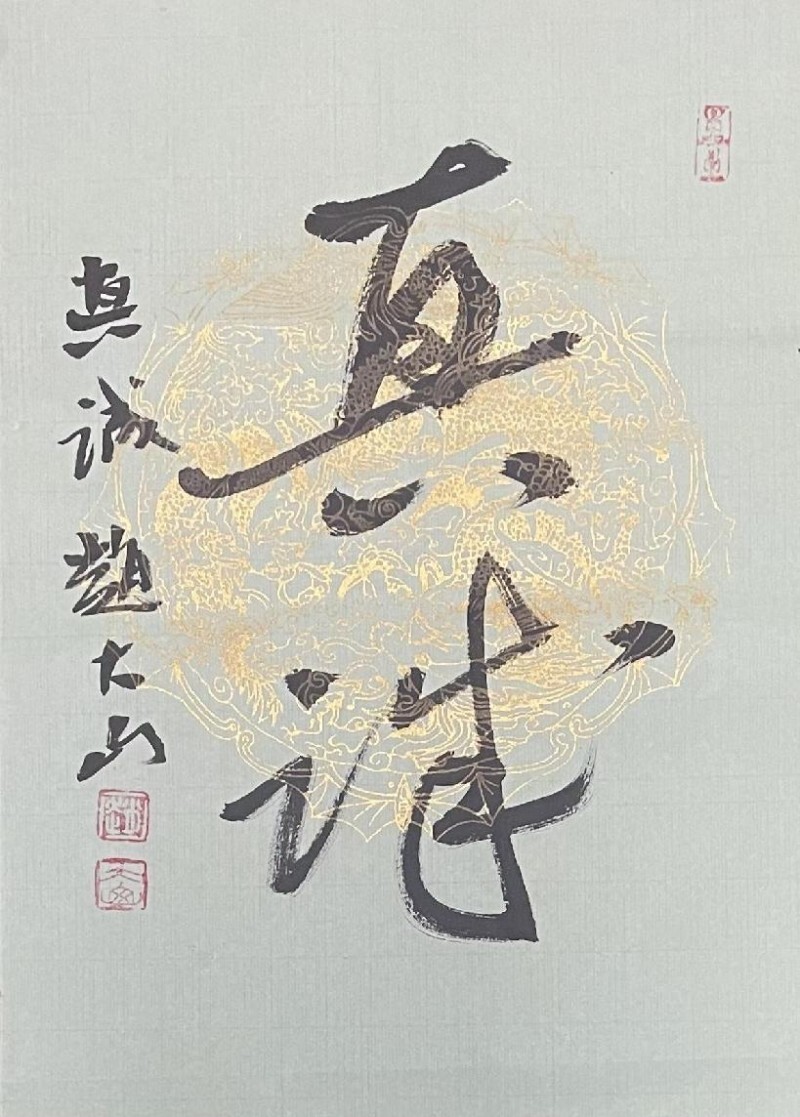 真诚
真诚 趙大山